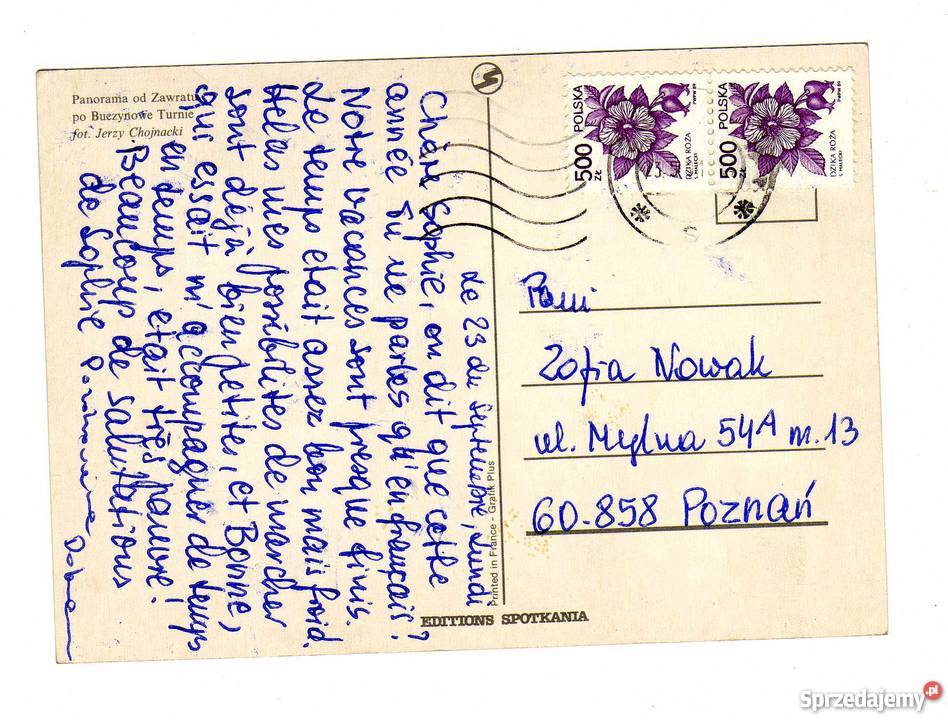 Panorama od Zawratu
po Buczynowe Turnie
fot. Jerzy Chojnacki
POLSKA
500 ZŁ
DZIKA RÓŻA
S. MAŁECKI
PWPW 89
POLSKA
500 ZŁ
DZIKA RÓŻA
S. MAŁECKI
PWPW 89
Le 23 du septempre, lundi
Chère Sophie, on dit que cette
année tu ne parles qu'en français?
Notre vacances sont presque finis.
Le temps etait assez bon mais froid.
Helas mes possibilites de marcher
sont déjà bien petites, et Bonne,
qui essait m'accompagner de temps
en temps, etait très pauvre!
Beaucoup de salutations
de Sophie
Printed in France - Grafik Plus
EDITIONS SPOTKANIA
Pani
Zofia Nowak
ul. Mylna 54A m. 13
60-858 Poznań
Sprzedajemy.pl